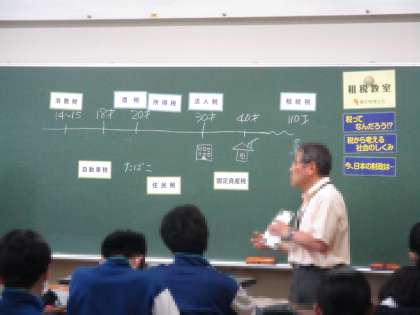 消費税
酒税
所得税
法人税
相続税
14~15
18才
20才
30才
40才
110才
自動車税
たばこ
住民税
固定資産税
租税教室
税って
なんだろう!?
税から考える
社会のしくみ
今、日本の財政は…